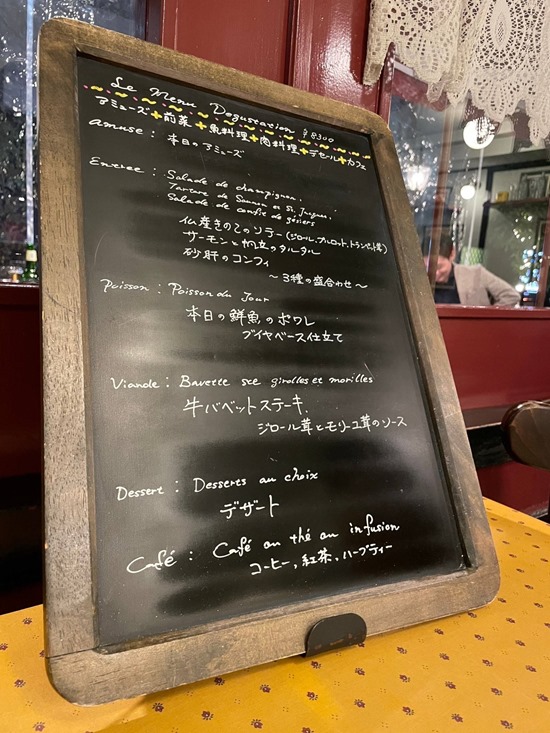 Le Menu Degustation ¥8300
アミューズ+前菜+魚料理+肉料理+デセール+カフェ
amuse : 本日のアミューズ
Entree : Salade de champignon,
Tartare de Saumon et St, Jaques,
Salade de confie de gesiers
仏産きのこのソテー(ジロール,プルロット,トランペット等)
サーモンと帆立のタルタル
砂肝のコンフィ
〜3種の盛合わせ〜
Poisson : Poisson du Jour
本日の鮮魚のポワレ
ブイヤベース仕立て
Viande : Bavette sce girolles et morilles
牛バベットステーキ,
ジロール茸とモリーユ茸のソース
Dessert : Desserts au choix
デザート
Café : Café ou thé ou infusion
コーヒー, 紅茶, ハーブティー